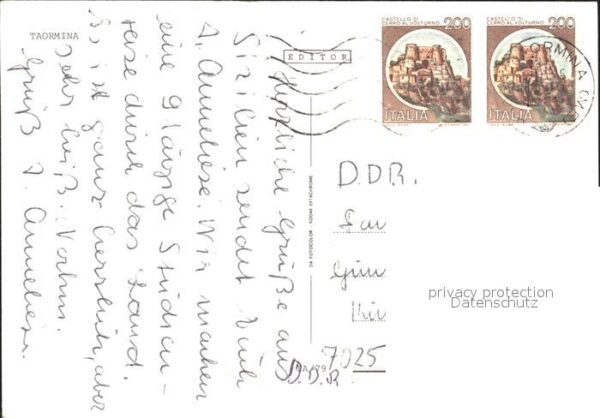 TAORMINA
EDITOR
CASTELLO DI
CERRO AL VOLTURNO
200
ITALIA
CASTELLO DI
CERRO AL VOLTURNO
200
ITALIA
Herzliche Grüße aus
Sizilien sendet Euch
A. Anneliese. Wir machen
eine Studien-
reise durch das Land.
Es ist ganz herrlich, aber
sehr heiß.
Gruß A. Anneliese.
DA FOTOCOLOR KODAK EKTACHROME
D.D.R.
Fa
Gün
Ki
7025
D.D.R.
privacy protection
Datenschutz